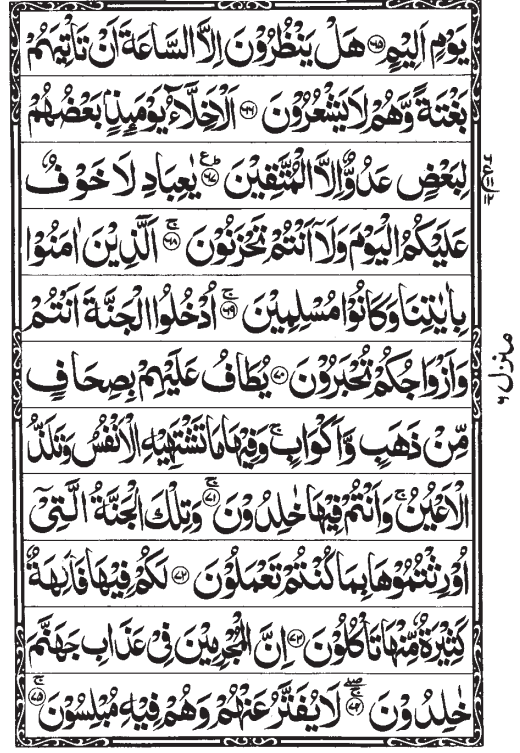 يَوْمٍ اَلِيْمٍ ﴿۶۵﴾ هَلْ يَنْظُرُوْنَ اِلَّا السَّاعَةَ اَنْ تَاْتِيَهُمْ
بَغْتَةً وَّهُمْ لَا يَشْعُرُوْنَ ﴿۶۶﴾ اَلْاَخِلَّآءُ يَوْمَىِٕذٍۭ بَعْضُهُمْ
لِبَعْضٍ عَدُوٌّ اِلَّا الْمُتَّقِيْنَ ﴿۶۷﴾ؕع يٰعِبَادِ لَا خَوْفٌ
عَلَيْكُمُ الْيَوْمَ وَلَاۤ اَنْتُمْ تَحْزَنُوْنَ ﴿۶۸﴾ۚ اَلَّذِيْنَ اٰمَنُوْا
بِاٰيٰتِنَا وَكَانُوْا مُسْلِمِيْنَ ﴿۶۹﴾ۚ اُدْخُلُوا الْجَنَّةَ اَنْتُمْ
وَاَزْوَاجُكُمْ تُحْبَرُوْنَ ﴿۷۰﴾ يُطَافُ عَلَيْهِمْ بِصِحَافٍ
مِّنْ ذَهَبٍ وَّاَكْوَابٍ ۚ وَفِيْهَا مَا تَشْتَهِيْهِ الْاَنْفُسُ وَتَلَذُّ
الْاَعْيُنُ ۚ وَاَنْتُمْ فِيْهَا خٰلِدُوْنَ ﴿۷۱﴾ۚ وَتِلْكَ الْجَنَّةُ الَّتِيْۤ
اُوْرِثْتُمُوْهَا بِمَا كُنْتُمْ تَعْمَلُوْنَ ﴿۷۲﴾ لَكُمْ فِيْهَا فَاكِهَةٌ
كَثِيْرَةٌ مِّنْهَا تَاْكُلُوْنَ ﴿۷۳﴾ اِنَّ الْمُجْرِمِيْنَ فِيْ عَذَابِ جَهَنَّمَ
خٰلِدُوْنَ ﴿۷۴﴾ۚۖ لَا يُفَتَّرُ عَنْهُمْ وَهُمْ فِيْهِ مُبْلِسُوْنَ ﴿۷۵﴾ۚ
منزل ۶